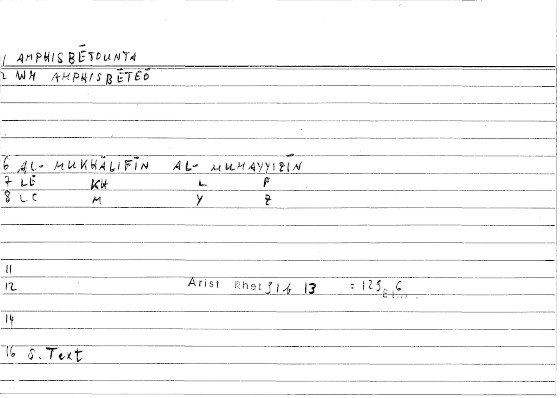 1 AMPHISBĒTOUNTA
2 WM AMPHISBĒTEŌ
6 AL- MUKHĀLIFĪN AL- MUMAYYIZĪN
7 LE KH L F
8 LC M Y Z
11
12 Arist Rhet 91b 13 = 129, 6
14
16 s. Text